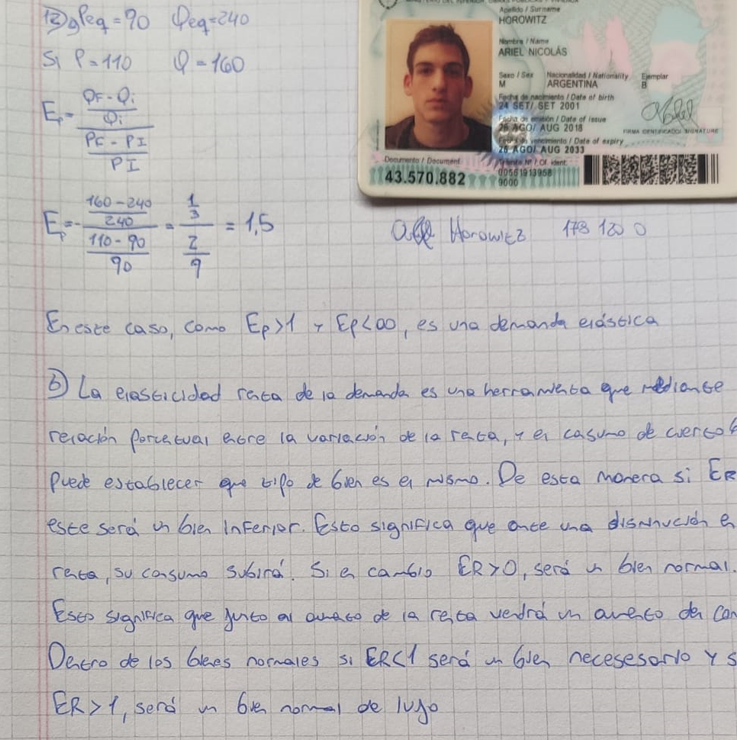 12) a) Peq=90 Qeq=240
Si P=110 Q=160
Ep= (QF-Qi / Qi) / (PF-PI / PI)
Ep=- (160-240 / 240) / (110-90 / 90) = (1/3) / (2/9) = 1,5
Apellido / Surname
HOROWITZ
Nombre / Name
ARIEL NICOLÁS
Sexo / Sex Nacionalidad / Nationality Ejemplar
M ARGENTINA B
Fecha de nacimiento / Date of birth
24 SET/ SET 2001
Fecha de emisión / Date of issue
26 AGO/ AUG 2018
FIRMA IDENTIFICADO / SIGNATURE
Fecha de vencimiento / Date of expiry
26 AGO/ AUG 2033
Documento / Document
43.570.882
9000
Horowitz
En este caso, como Ep>1 y Ep<∞, es una demanda elástica
b) La elasticidad renta de la demanda es una herramienta que mediante
relación porcentual entre la variación de la renta, y el casumo de cierto b
puede establecer que tipo de bien es el mismo. De esta manera si ER
este será un bien inferior. Esto significa que ante una disminución e
renta, su consumo subirá. Si en cambio ER>0, será un bien normal.
Esto significa que junto al aumento de la renta vendrá un aumento del con
Dentro de los bienes normales si ER<1 será un bien necesesario y s
ER>1, será un bien normal de lujo